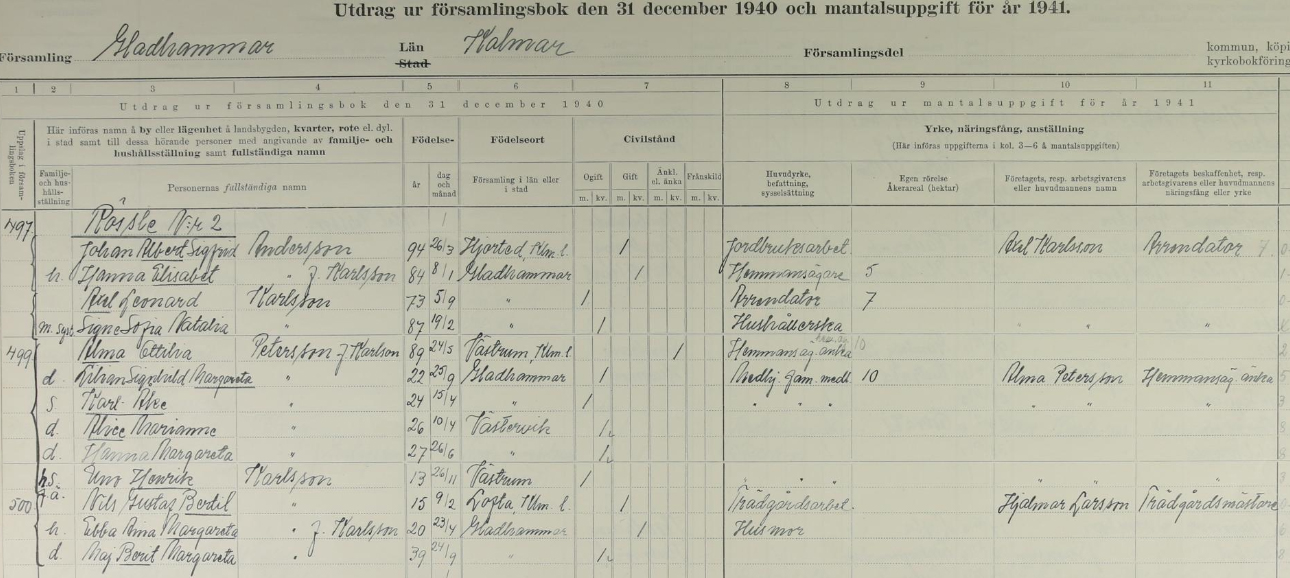 Utdrag ur församlingsbok den 31 december 1940 och mantalsuppgift för år 1941.
Församling Gladhammar Län Kalmar Församlingsdel kommun, köpi
Stad kyrkobokföring
1 2 3 4 5 6 7 8 9 10 11
Utdrag ur församlingsbok den 31 december 1940 Utdrag ur mantalsuppgift för år 1941
Uppslag i församlingsboken
Här införas namn å by eller lägenhet å landsbygden, kvarter, rote el. dyl. i stad samt till dessa hörande personer med angivande av familje- och hushållsställning samt fullständiga namn
Födelse- Födelseort Civilstånd
Yrke, näringsfång, anställning
(Här införas uppgifterna i kol. 3—6 å mantalsuppgiften)
Familje- och hushållsställning Personernas fullständiga namn år dag och månad Församling i län eller i stad Ogift Gift Änkl. el. änka Frånskild Huvudyrke, befattning, sysselsättning Egen rörelse Åkerareal (hektar) Företagets, resp. arbetsgivarens eller huvudmannens namn Företagets beskaffenhet, resp. arbetsgivarens eller huvudmannens näringsfång eller yrke
m. kv. m. kv. m. kv. m. kv.
497 Rössle N:r 2
Johan Albert Sigfrid Andersson 94 26/3 Hjorted, Klm. l. / Jordbruksarbet. Axel Karlsson Arrendator
h. Hanna Elisabet " f. Karlsson 84 8/1 Gladhammar / Hemmansägare 5
Axel Leonard Karlsson 73 5/9 " / Arrendator 7
m. syst. Signe Sofia Natalia " 87 19/2 " / Hushållerska " "
499 Alma Ottilia Petersson f. Karlson 89 24/5 Västrum, Klm. l. / Hemmansäg. änka 10
d. Sigrid Margareta " 22 25/9 Gladhammar / Medhj. fam. medl. 10 Alma Petersson Hemmansäg. änka
s. Karl-Åke " 24 15/4 " / " " " " "
d. Alice Marianne " 26 10/4 Västervik /
d. Hanna Margareta " 27 26/6 " /
Uno Henrik Karlsson 13 26/11 Västrum / " " "
500 Nils Gustaf Bertil " 15 9/2 Lofta, Klm. l. / Trädgårdsarbet. Hjalmar Larsson Trädgårdsmästare
h. Ebba Anna Margareta " f. Karlsson 20 23/4 Gladhammar / Husmor
d. Maj Berit Margareta " 39 24/9 " /